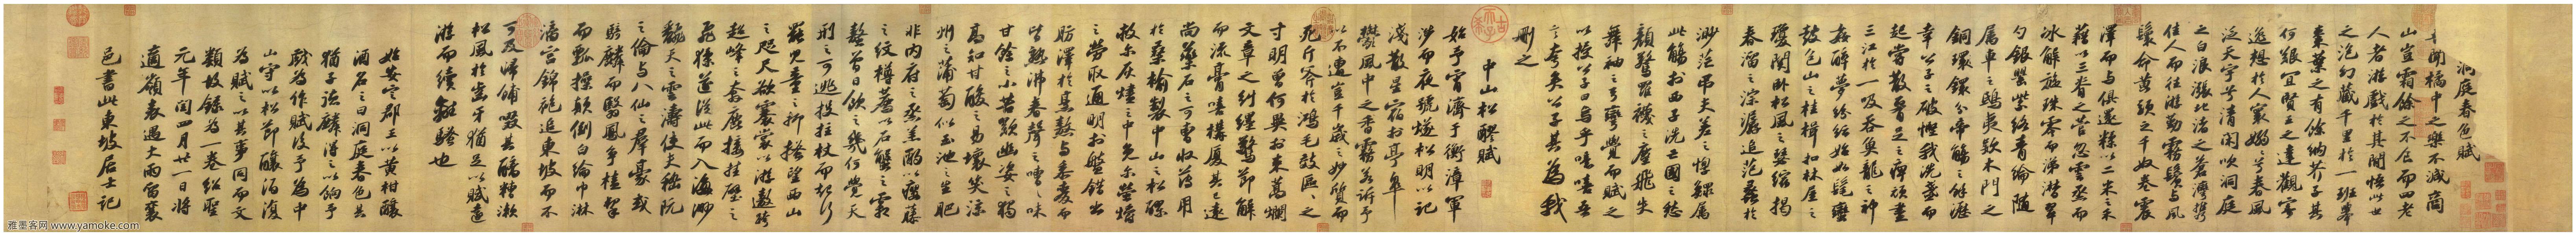 洞庭春色賦
聞橘中之樂不減商
山豈霜餘之不食而四老
人者游戲於其間悟此世
之泡幻藏千里於一班舉
棗葉之有餘納芥子其
何艱宜賢王之達觀寄
逸想於人寰嫋嫋兮春風
泛天宇兮清閑吹洞庭
之白浪漲北渚之蒼灣攜
佳人而往游勤霧鬢與風
鬟命黃頭之千奴卷震
澤而與俱還糅以二米之禾
藉以三脊之菅忽雲蒸而
冰解旋珠零而涕潸翠
勺銀罌紫絡青綸隨
屬車之鴟夷款木門之
銅鐶分帝觴之餘瀝
幸公子之破慳我洗盞而
起嘗散腰足之痹頑盡
三江於一吸吞魚龍之神
姦醉夢紛紜始如髦蠻
鼓包山之桂楫扣林屋之
瓊關臥松風之瑟縮揭
春溜之淙潺追范蠡於
渺茫弔夫差之惸鰥屬
此觴於西子洗亡國之愁
顏驚羅襪之塵飛失
舞袖之弓彎覺而賦之
以授公子曰烏乎噫嘻吾
言夸矣公子其為我
刪之
中山松醪賦
始予宵濟于衡漳軍
涉而夜號燧松明以記
淺散星宿於亭皋
鬱風中之香霧若訴予
以不遭豈千歲之妙質而
死斤斧於鴻毛效區區之
寸明曾何異於束蒿爛
文章之糾纏驚節解
而流膏嘻構厦其已遠
尚藥石之可曹收薄用
於桑榆製中山之松醪
救爾灰燼之中免爾螢爝
之勞取通明於盤錯出
肪澤於烹熬與黍麥而
皆熟沸舂聲之嘈嘈味
甘餘之小苦歎幽姿之獨
高知甘酸之易壞笑涼
州之蒲萄似玉池之生肥
非內府之蒸羔酌以癭藤
之紋樽薦以石蟹之霜
螯曾日飲之幾何覺天
刑之可逃投拄杖而起行
罷兒童之抑搔望西山
之咫尺欲褰裳以游遨跨
超峰之奔鹿接挂壁之
飛猱遂從此而入海渺
翻天之雲濤使夫嵇阮
之倫與八仙之羣豪或
騎麟而翳鳳爭榼挈
而瓢操顛倒白綸巾淋
漓宮錦袍追東坡而不
可及歸餔歠其醨糟漱
松風於齒牙猶足以賦遠
游而續離騷也
始安定郡王以黃柑釀
酒名之曰洞庭春色其
猶子德麟得之以餉予
戲為作賦後予為中
山守以松節釀酒復
為賦之以其事同而文
類故錄為一卷紹聖
元年閏四月廿一日將
適嶺表遇大雨留襄
邑書此東坡居士記
雅墨客网 www.yamoke.com